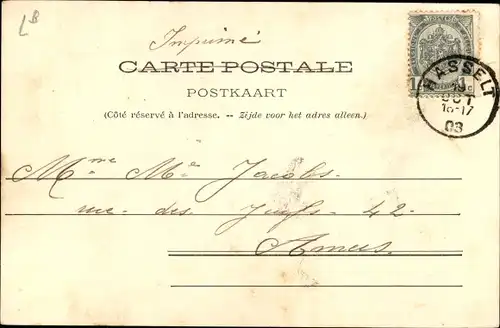 LB
Imprimé
CARTE POSTALE
POSTKAART
(Côté réservé à l'adresse. -- Zijde voor het adres alleen.)
HASSELT
OCT
16-17
03
Mme Me Jacobs
rue des Juifs 42
Anvers.